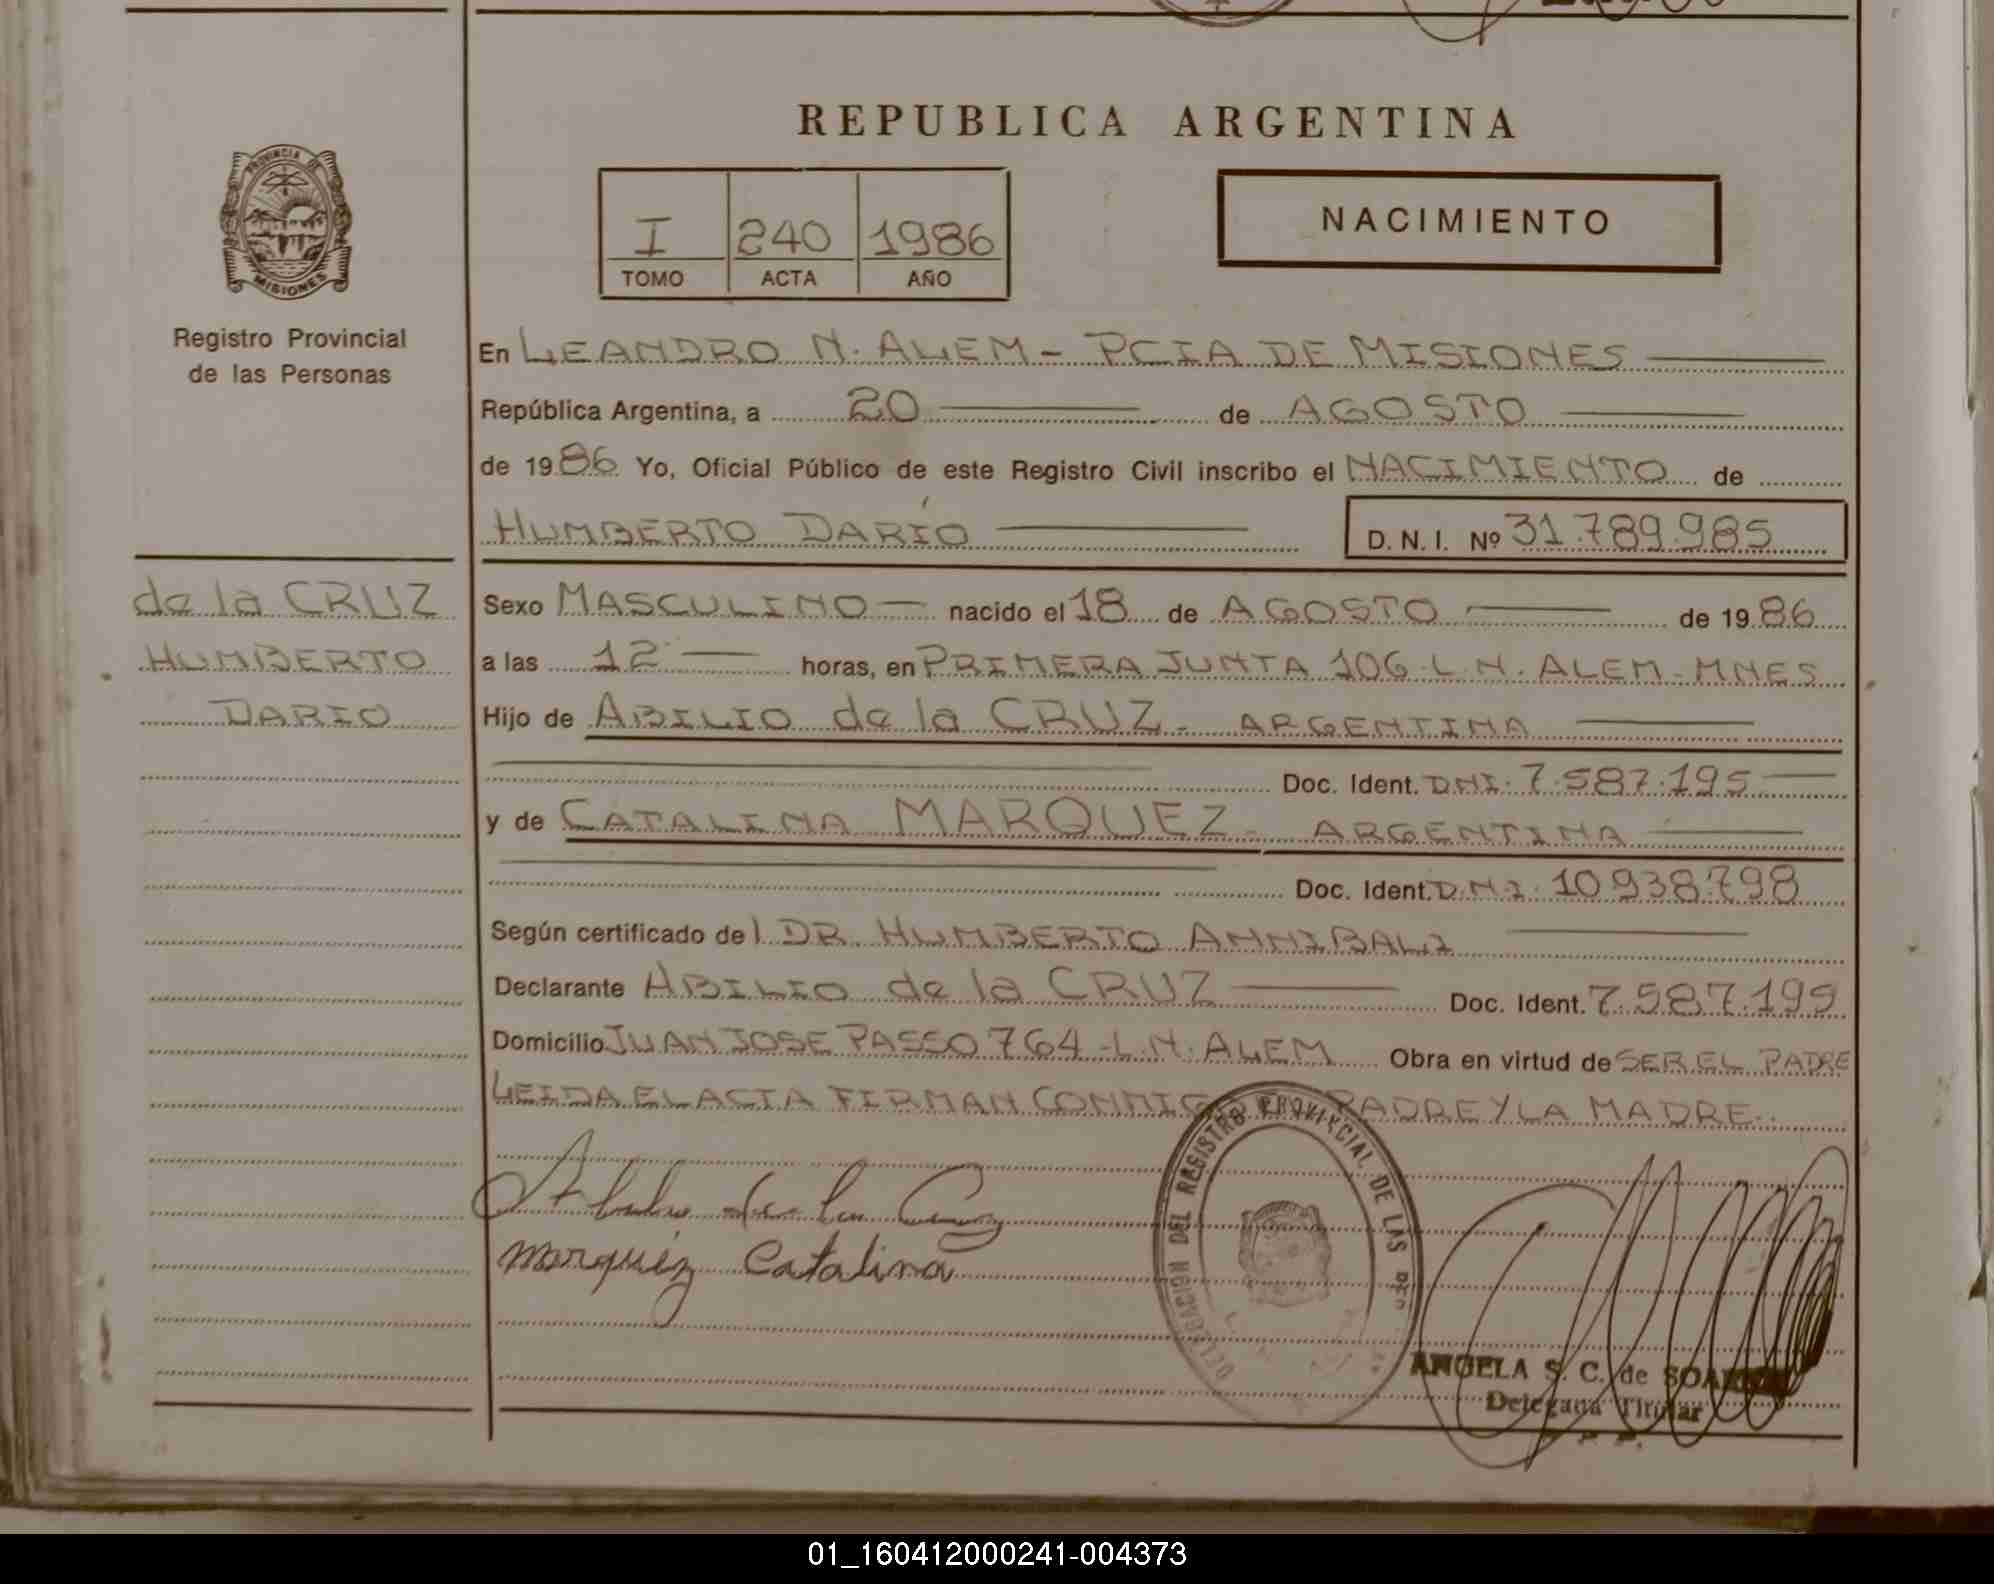 REPUBLICA ARGENTINA
PROVINCIA DE
MISIONES
Registro Provincial
de las Personas
I 240 1986
TOMO ACTA AÑO
NACIMIENTO
En LEANDRO N. ALEM - PCIA DE MISIONES
República Argentina, a 20 de AGOSTO
de 1986 Yo, Oficial Público de este Registro Civil inscribo el NACIMIENTO de
HUMBERTO DARÍO D. N. I. Nº 31.789.985
de la CRUZ
HUMBERTO
DARIO
Sexo MASCULINO - nacido el 18 de AGOSTO de 1986
a las 12 horas, en PRIMERA JUNTA 106 - L. N. ALEM - MNES
Hijo de ABILIO de la CRUZ - ARGENTINA
Doc. Ident. DNI. 7.587.195
y de CATALINA MARQUEZ - ARGENTINA
Doc. Ident. D.N.I. 10.938.798
Según certificado del DR. HUMBERTO ANNIBALI
Declarante ABILIO de la CRUZ Doc. Ident. 7.587.195
Domicilio JUAN JOSE PASSO 764 - L. N. ALEM Obra en virtud de SER EL PADRE
LEIDA EL ACTA FIRMAN CONMIGO PADRE Y LA MADRE.
Abilio de la Cruz
Marquez Catalina
DELEGACION DEL REGISTRO PROVINCIAL DE LAS
ANGELA S. C. de
Delegada Titular
01_160412000241-004373